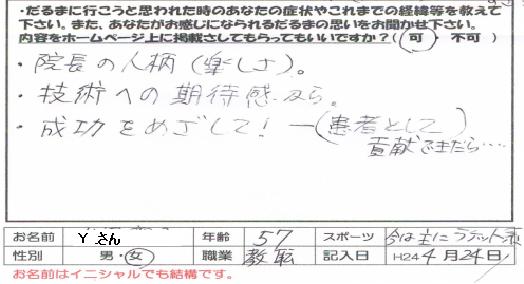 ・だるまに行こうと思われた時のあなたの症状やこれまでの経緯等を教えて
下さい。また、あなたがお感じになられるだるまの思いをお聞かせ下さい。
内容をホームページ上に掲載さしてもらってもいいですか？( 可 ・ 不可 )
・院長の人柄(楽しさ)。
・技術への期待感から。
・成功をめざして！―(患者として)
貢献できたら…
お名前 Yさん 年齢 57 スポーツ 今は主に
性別 男・女 職業 教職 記入日 H24 4月24日
お名前はイニシャルでも結構です。